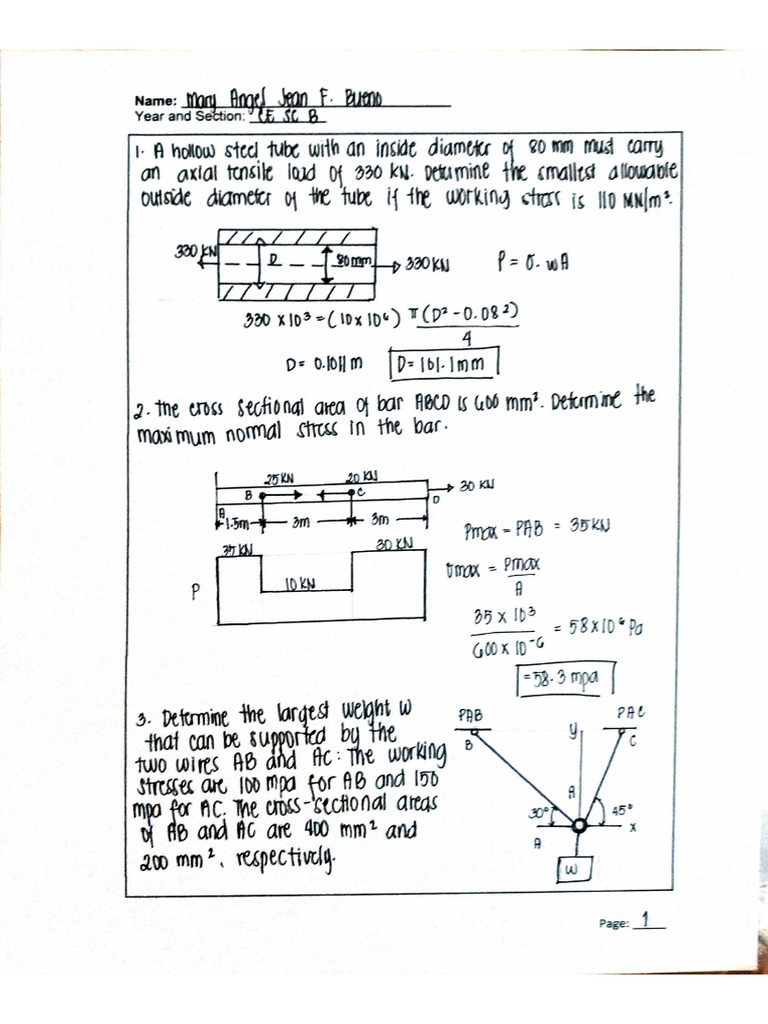 Name: Mary Angel Jean F. Bueno
Year and Section: CE SC B
1. A hollow steel tube with an inside diameter of 80 mm must carry
an axial tensile load of 330 KN. Determine the smallest allowable
outside diameter of the tube if the working stress is 110 MN/m².
330 KN
D
80mm
330 KN
P = σ. wA
330 x 10³ = (10 x 10⁶) π (D² - 0.08²)
4
D = 0.1011 m
D = 101.1mm
2. The cross sectional area of bar ABCD is 600 mm². Determine the
maximum normal stress in the bar.
25 KN
20 KN
B
C
30 KN
A
D
1.5m
3m
3m
35 KN
30 KN
P
10 KN
Pmax = PAB = 35KN
σmax = Pmax
A
35 x 10³
600 x 10⁻⁶
= 58 x 10⁶ Pa
= 58.3 mpa
3. Determine the largest weight W
that can be supported by the
two wires AB and AC: The working
stresses are 100 mpa for AB and 150
mpa for AC. The cross-sectional areas
of AB and AC are 400 mm² and
200 mm², respectively.
PAB
B
y
PAC
C
A
30°
45°
x
A
W
Page: 1